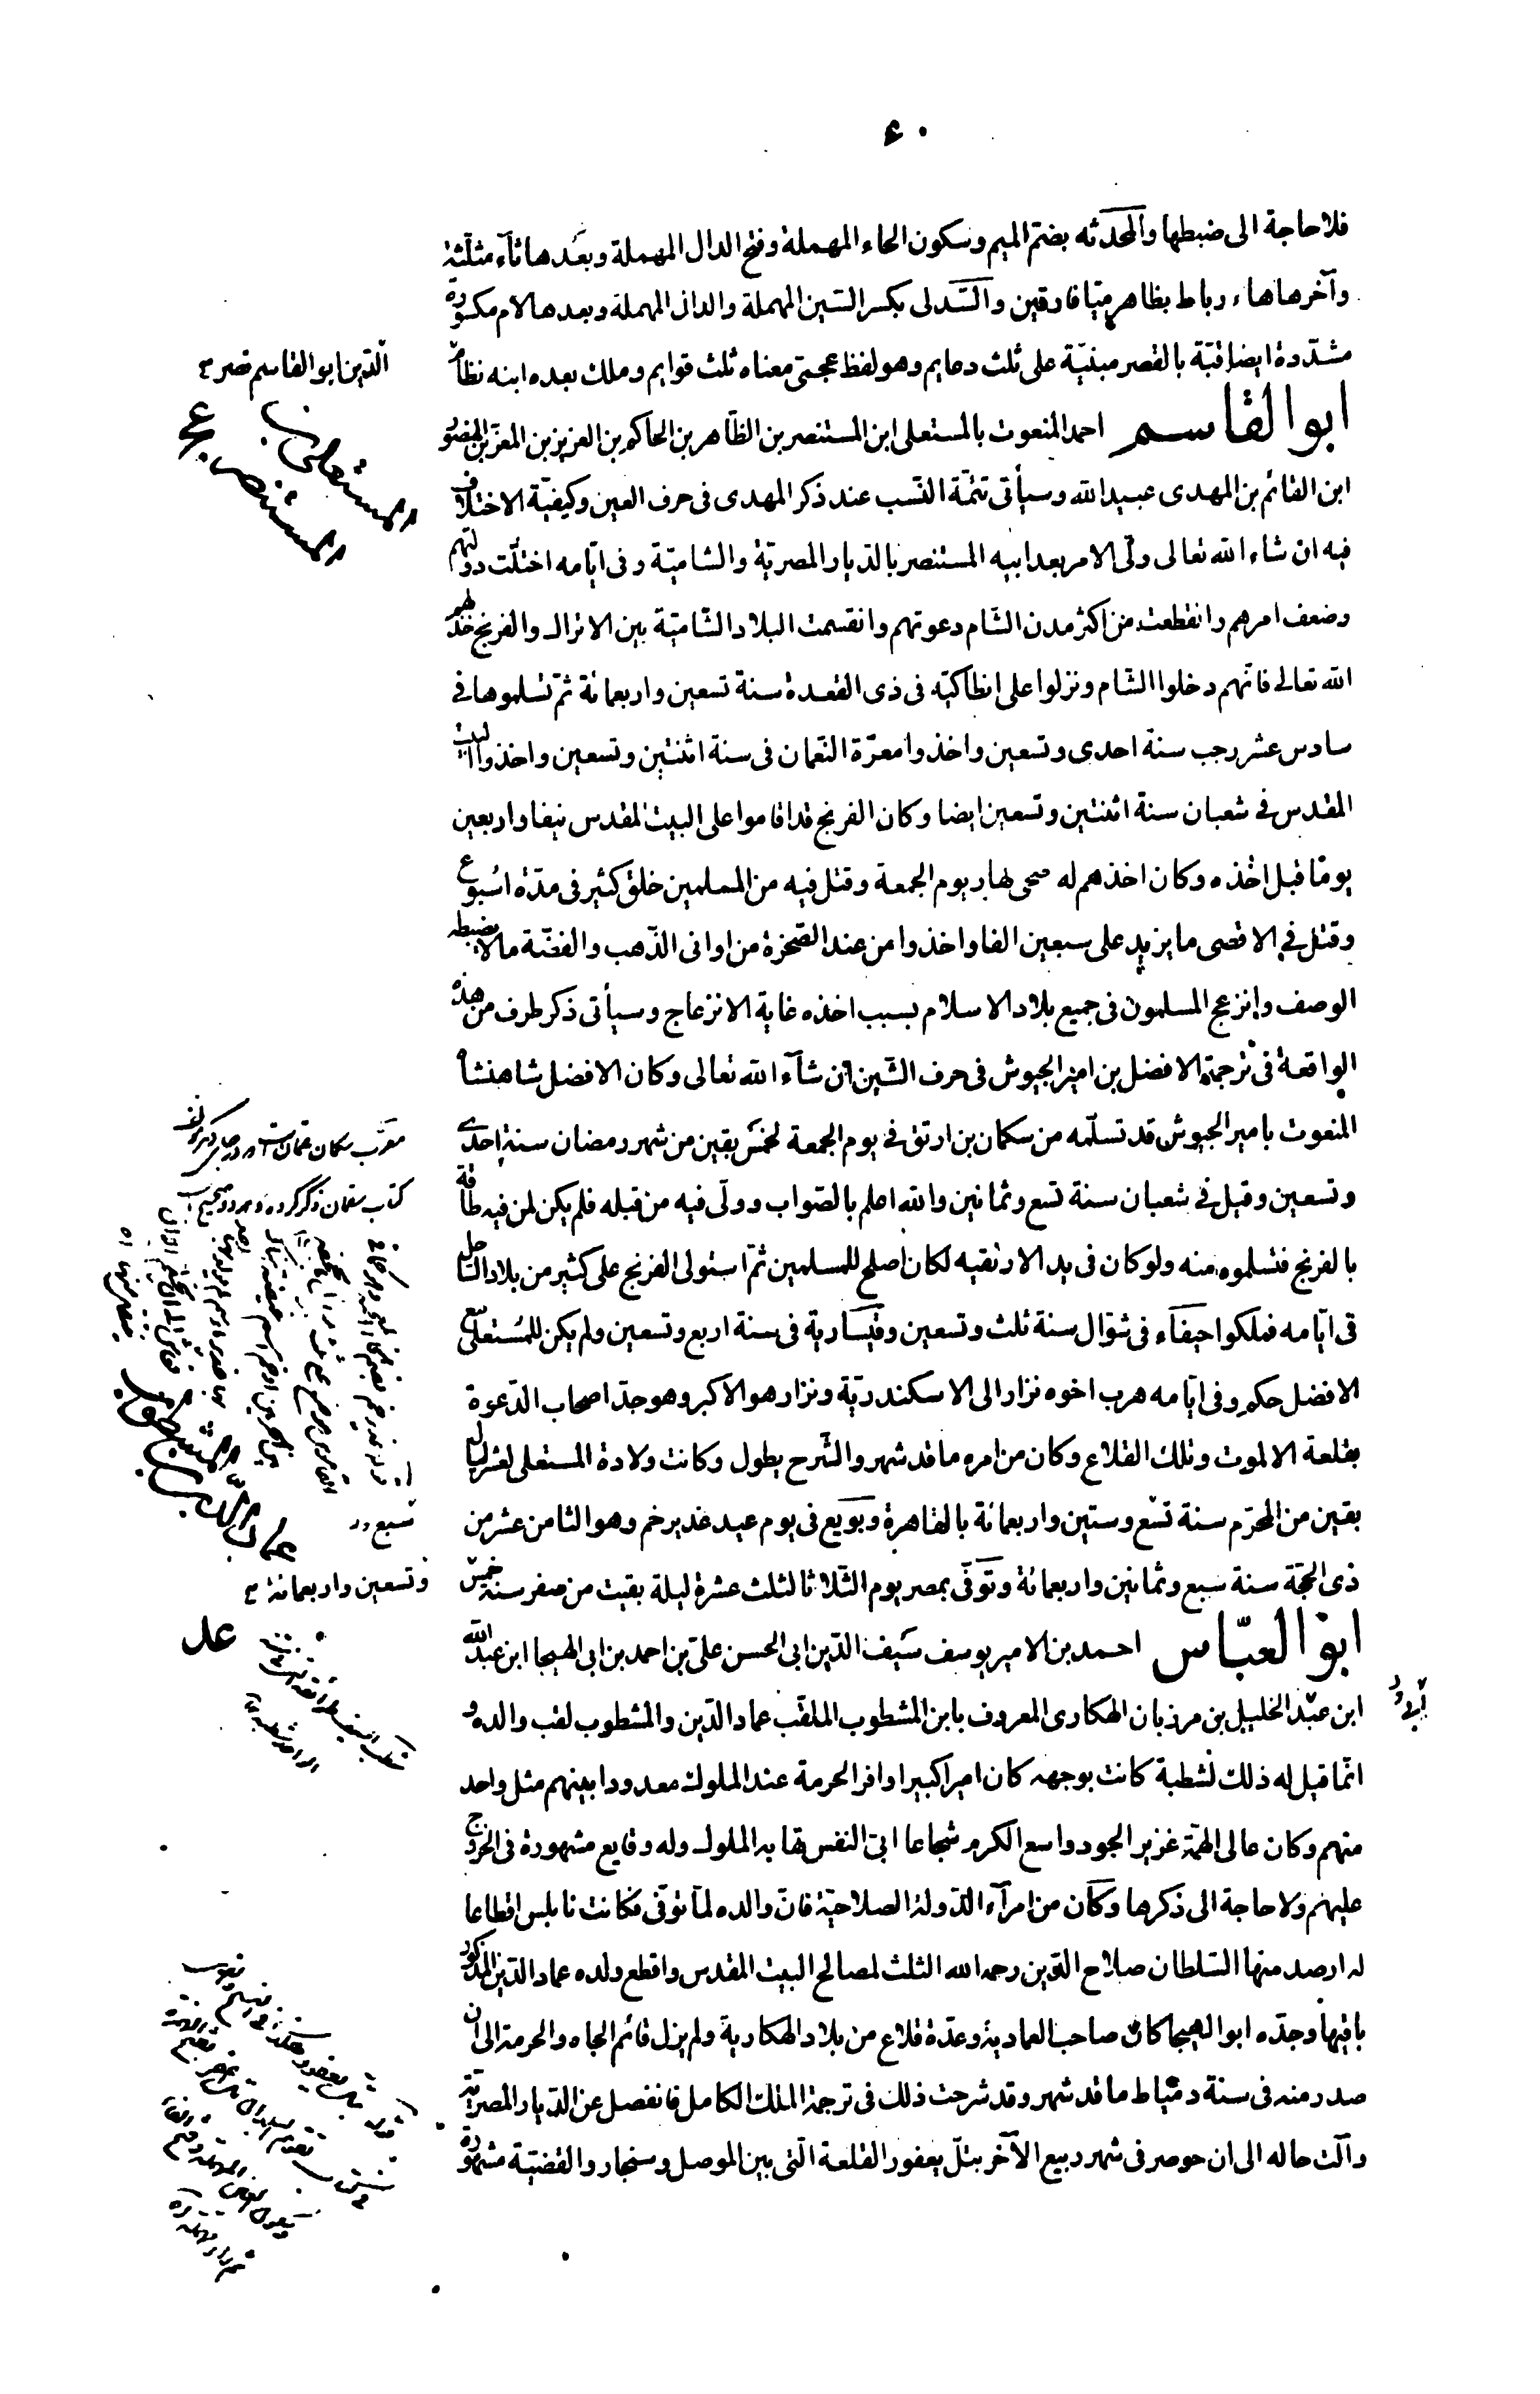 ٤٠
فلا حاجة الى ضبطها والمحدثه بضم الميم وسكون الحاء المهملة وفتح الدال المهملة وبعدها ثآء مثلّثة
وآخرها هاء رباط بظاهر ميّا فارقين والسّدلى بكسر السّين المهملة والدال المهملة وبعدها لام مكسورة
مشدّدة ايضا قبّة بالقصر مبنيّة على ثلث دعايم وهو لفظ عجمىّ معناه ثلث قوايم وملك بعده ابنه نظام
الدّين ابو القاسم نصر
ابو القاسم احمد المنعوت بالمستعلى ابن المستنصر بن الظّاهر بن الحاكم بن العزيز بن المعزّ بن المنصور
المستعلى بن
المستنصر
ابن القائم بن المهدى عبيد الله وسيأتى تتمّة النّسب عند ذكر المهدى فى حرف العين وكيفيّة الاختلاف
فيه ان شاء الله تعالى ولّى الامر بعد ابيه المستنصر بالديار المصريّة والشاميّة وفى ايّامه اختلّت دولتهم
وضعف امرهم وانقطعت من اكثر مدن الشّام دعوتهم وانقسمت البلاد الشّاميّة بين الاتراك والفرنج خذلهم
الله تعالى فانّهم دخلوا الشّام ونزلوا على انطاكيّه فى ذى القعدة سنة تسعين واربعمائة ثمّ تسلموها فى
سادس عشر رجب سنة احدى وتسعين واخذوا معرّة النّعمان فى سنة اثنتين وتسعين واخذوا البيت
المقدس فى شعبان سنة اثنتين وتسعين ايضا وكان الفرنج قد اقاموا على البيت المقدس نيفا واربعين
يومًا قبل اخذه وكان اخذهم له ضحى نهار يوم الجمعة وقتل فيه من المسلمين خلق كثير فى مدّة اسبوع
وقتل فى الاقصى ما يزيد على سبعين الفا واخذوا من عند الصّخرة من اوانى الذّهب والفضّة ما لا يضبطه
الوصف وانزعج المسلمون فى جميع بلاد الاسلام بسبب اخذه غاية الانزعاج وسيأتى ذكر طرف من هذه
الواقعة فى ترجمة الافضل بن امير الجيوش فى حرف الشّين ان شآء الله تعالى وكان الافضل شاهنشاه
المنعوت بامير الجيوش قد تسلّمه من سكمان بن ارتق فى يوم الجمعة لخمس بقين من شهر رمضان سنة احدى
وتسعين وقيل فى شعبان سنة تسع وثمانين والله اعلم بالصّواب وولّى فيه من قبله فلم يكن لمن فيه طاقة
بالفرنج فتسلموه منه ولو كان فى يد الارتقيه لكان اصلح للمسلمين ثمّ استولى الفرنج على كثير من بلاد السّاحل
فى ايّامه فملكوا حيفآء فى شوّال سنة ثلث وتسعين وقيساريّة فى سنة اربع وتسعين ولم يكن للمستعلى مع
الافضل حكم وفى ايّامه هرب اخوه نزار الى الاسكندريّة ونزار هو الاكبر وهو جدّ اصحاب الدّعوة
بقلعة الالموت وتلك القلاع وكان من امره ما قد شهر والشّرح يطول وكانت ولادة المستعلى لعشر ليال
بقين من المحرّم سنة تسع وستين واربعمائة بالقاهرة وبويع فى يوم عيد غدير خم وهو الثامن عشر من
ذى الحجّة سنة سبع وثمانين واربعمائة وتوفّى بمصر يوم الثّلاثا لثلث عشرة ليلة بقيت من صفر سنة خمس
وتسعين واربعمائة
ابو العبّاس احمد بن الامير يوسف سيف الدّين ابى الحسن علىّ بن احمد بن ابى الهيجا ابن عبد الله
عماد الدين بن
المشطوب
ابن عبد الخليل بن مرزبان الهكارى المعروف بابن المشطوب الملقّب عماد الدّين والمشطوب لقب والده و
انّما قيل له ذلك لشطبة كانت بوجهه كان اميرا كبيرا وافر الحرمة عند الملوك معدودا بينهم مثل واحد
منهم وكان عالى الهمّة غزير الجود واسع الكرم شجاعا ابىّ النفس تهابه الملوك وله وقايع مشهورة فى الخروج
عليهم ولا حاجة الى ذكرها وكان من امرآء الدّولة الصلاحيّة فانّ والده لمّا توفّى فكانت نابلس اقطاعا
له ارصد منها السّلطان صلاح الدّين رحمه الله الثلث لمصالح البيت المقدس واقطع ولده عماد الدّين المذكور
باقيها وجدّه ابو الهيجا كان صاحب العمادية وعدّة قلاع من بلاد الهكارية ولم يزل قائم الجاه والحرمة الى ان
صدر منه فى سنة دمياط ما قد شهر وقد شرحت ذلك فى ترجمة الملك الكامل فانفصل عن الدّيار المصريّة
وآلت حاله الى ان حوصر فى شهر ربيع الآخر بتلّ يعفور القلعة الّتى بين الموصل وسنجار والقضيّة مشهورة